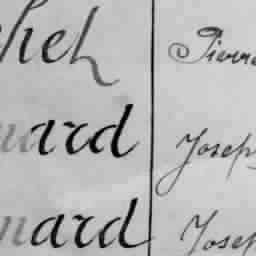 chel Pierre
nard Joseph
nard Joseph